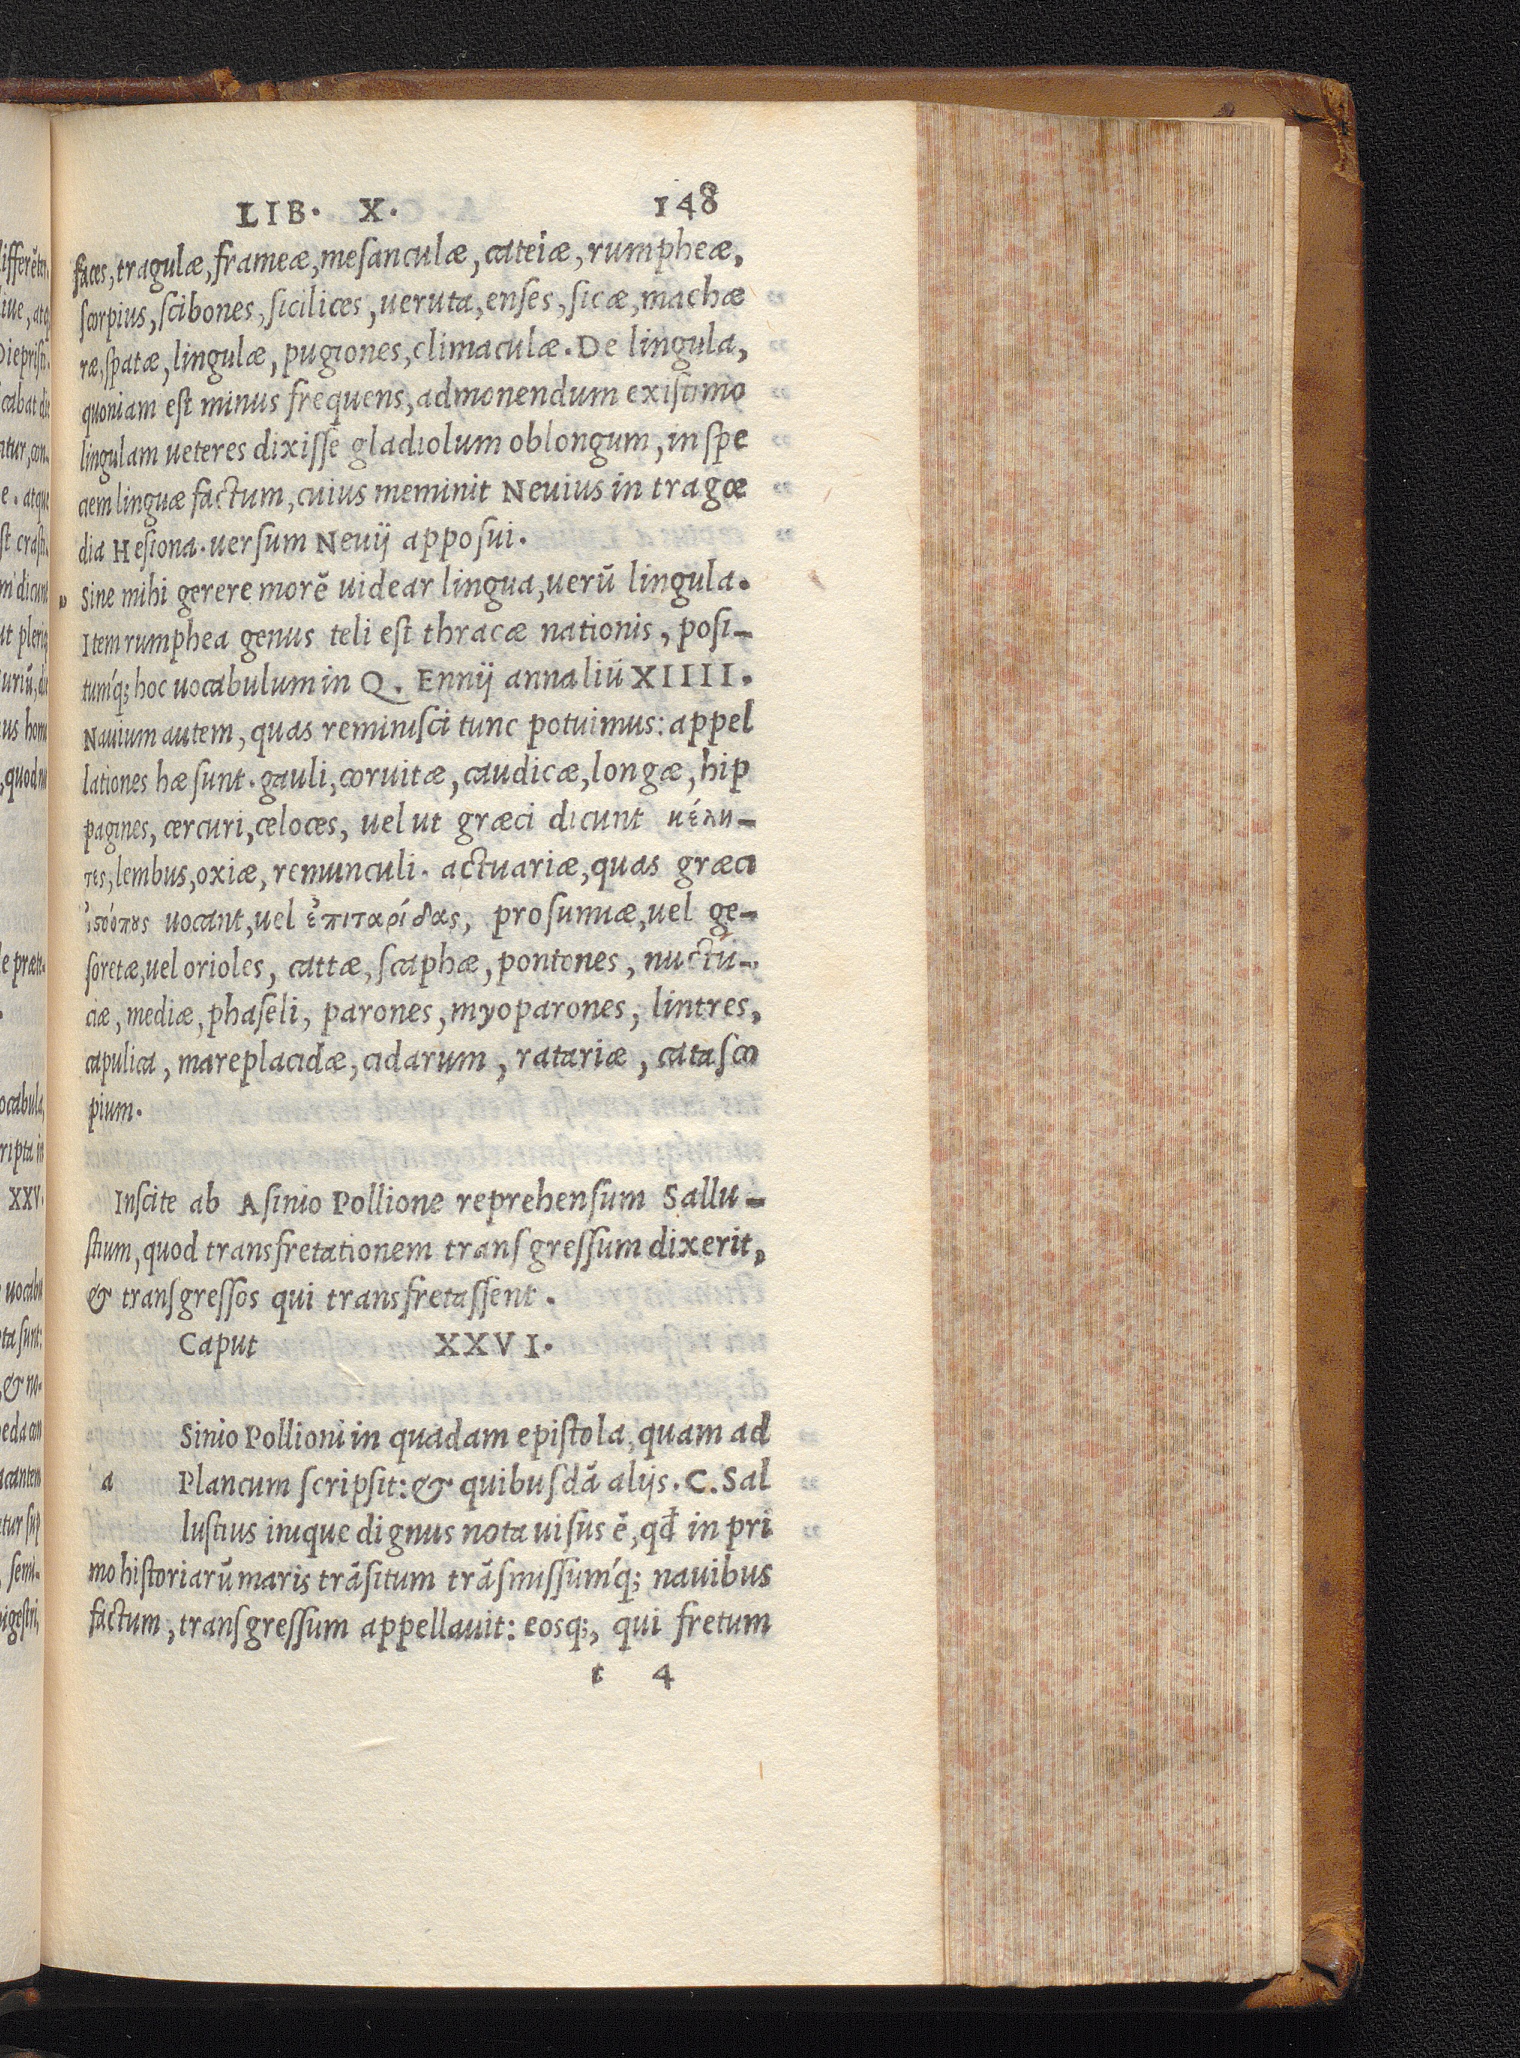 LIB. X. 148
faces, tragulæ, frameæ, mesanculæ, cateiæ, rumpheæ,
scorpius, scibones, sicilices, ueruta, enses, sicæ, machæ
ræ, spatæ, lingulæ, pugiones, climaculæ. De lingula,
quoniam est minus frequens, admonendum existimo
lingulam ueteres dixisse gladiolum oblongum, in spe
ciem linguæ factum, cuius meminit Neuius in tragœ
dia Hesiona. uersum Neuij apposui.
„ Sine mihi gerere morē uidear lingua, uerū lingula.
Item rumphea genus teli est thracæ nationis, posi-
tumq́; hoc uocabulum in Q. Ennij annaliū XIIII.
Nauium autem, quas reminisci tunc potuimus: appel
lationes hæ sunt. gauli, coruitæ, caudicæ, longæ, hip
pagines, cercuri, celoces, uel ut græci dicunt κέλη-
τες, lembus, oxiæ, renunculi. actuariæ, quas græci
ἱςόοπους uocant, uel ἐπιταρίδας, prosumiæ, uel ge-
soretæ, uel orioles, cattæ, scaphæ, pontones, nuctú-
ciæ, mediæ, phaseli, parones, myoparones, lintres,
capulica, mareplacidæ, cidarum, ratariæ, catasco
pium.
Inscite ab Asinio Pollione reprehensum Sallu-
stium, quod transfretationem transgressum dixerit,
& transgressos qui transfretassent.
Caput XXVI.
Sinio Pollioni in quadam epistola, quam ad
a Plancum scripsit: & quibusdā alijs. C. Sal
lustius inique dignus nota uisus ē, qđ in pri
mo historiarū maris trāsitum trāsmissumq́; nauibus
factum, transgressum appellauit: eosq;, qui fretum
t 4